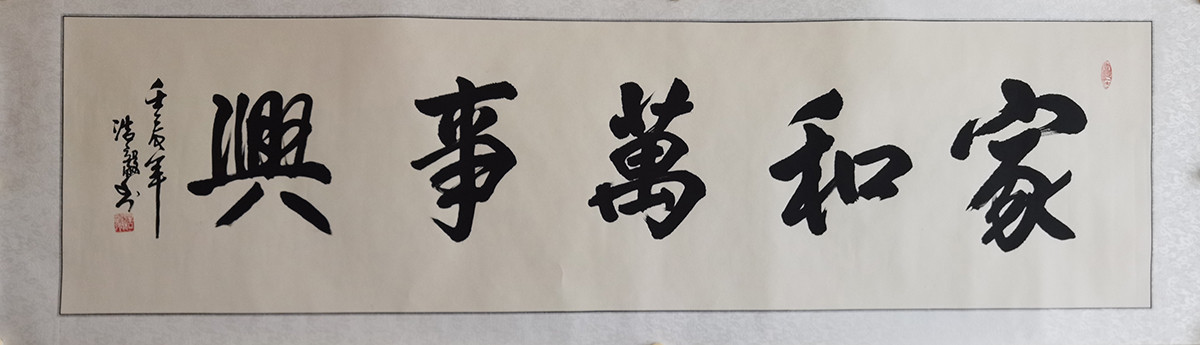 家和萬事興
壬辰年
浩毅书